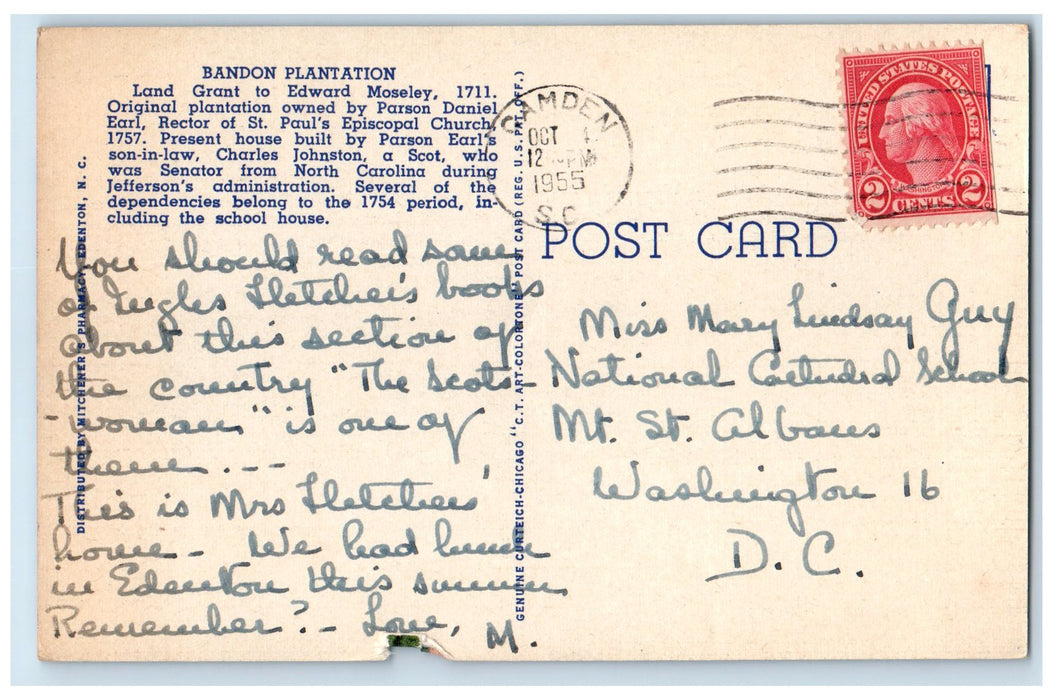 BANDON PLANTATION
Land Grant to Edward Moseley, 1711.
Original plantation owned by Parson Daniel
Earl, Rector of St. Paul's Episcopal Church,
1757. Present house built by Parson Earl's
son-in-law, Charles Johnston, a Scot, who
was Senator from North Carolina during
Jefferson's administration. Several of the
dependencies belong to the 1754 period, in-
cluding the school house.
You should read some
of Ingles Fletcher's books
about this section of
the country "The Scots-
-woman" is one of
them.---
This is Mrs Fletchers'
home - We had lunch
in Edenton this summer
Remember? - Love, M.
DISTRIBUTED BY MITCHENER'S PHARMACY, EDENTON, N. C.
GENUINE CURTEICH-CHICAGO "C.T. ART-COLORTONE" POST CARD (REG. U.S. PAT. OFF.)
CAMDEN
OCT
12 PM
1955
S.C.
UNITED STATES POSTAGE
WASHINGTON
2 CENTS 2
POST CARD
Miss Mary Lindsay Guy
National Cathedral School
Mt. St. Albans
Washington 16
D.C.